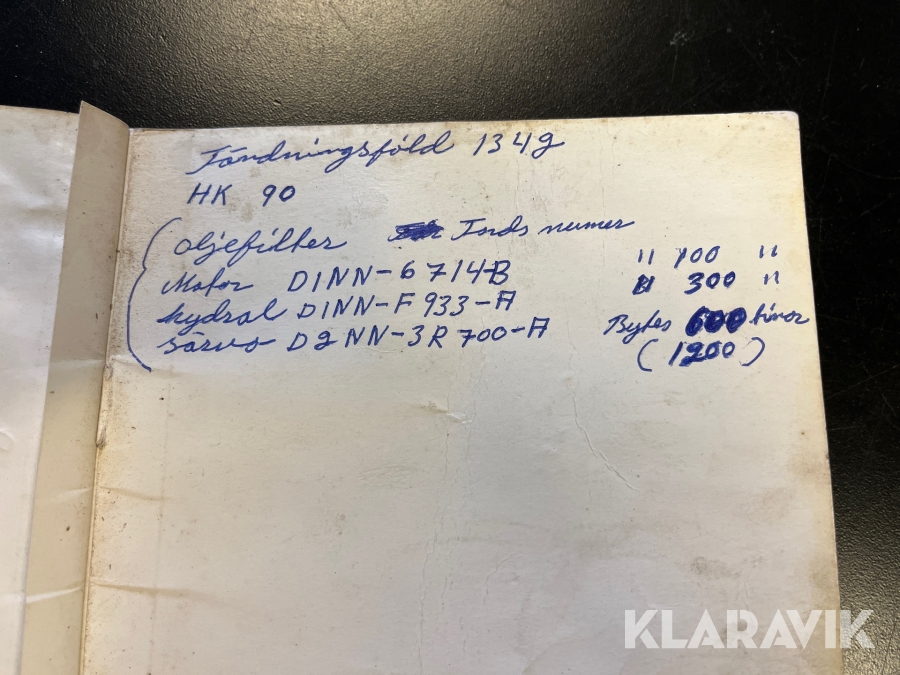 Tändningsföld 1342
HK 90
oljefilter Fords numer
Motor D1NN-6714-B " 100 "
hydral D1NN-F933-A " 300 "
särvo D2NN-3R700-A Bytes 600 timor
(1200)
KLARAVIK